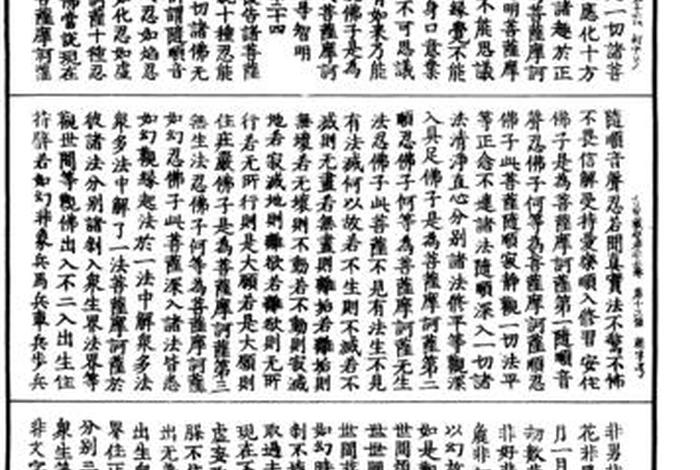 一切諸菩
應化十方
諸趣於正
菩薩摩訶
明菩薩摩
不能思議
緣覺不能
身口意業
不可思議
有如来乃能
佛子是為
菩薩摩訶
善智明
二十四
復告諸菩
十種忍能
切諸佛无
謂隨順音
忍如焰忍
如化忍如虛
薩十種忍
佛當說現在
菩薩摩訶薩
隨順音聲忍若聞真實法不驚不怖
不畏信解受持愛樂順入修習安住
佛子是為菩薩摩訶薩第一隨順音
聲忍佛子何等為菩薩摩訶薩順忍
佛子此菩薩隨順寂靜觀一切法平
等正念不違諸法隨順深入一切諸
法清淨直心分別諸法修平等觀深
入具足佛子是為菩薩摩訶薩第二
順忍佛子何等為菩薩摩訶薩无生
法忍佛子此菩薩不見有法生不見
有法滅何以故若不生則不滅若不
滅則无盡若无盡則離垢若離垢則
无壞若无壞則不動若不動則寂滅
地若寂滅地則離欲若離欲則无所
行若无所行則是大願若是大願則
住莊嚴佛子是為菩薩摩訶薩第三
無生法忍佛子何等為菩薩摩訶薩
如幻忍佛子此菩薩深入諸法皆悉
如幻觀緣起法於一法中解衆多法
衆多法中解了一法菩薩摩訶薩於
彼諸法分別諸刹入衆生界法界等
觀世間等觀佛出入不二入出生住
持譬若如幻非象兵馬兵車兵步兵
非男
花非
月一月
切數非
非好非
以幻故
如是
世間
世世間
世間
如幻時
刹不
取過去
現在不
虛妄
出无
出生
界住正
分別三
衆生等
非文字